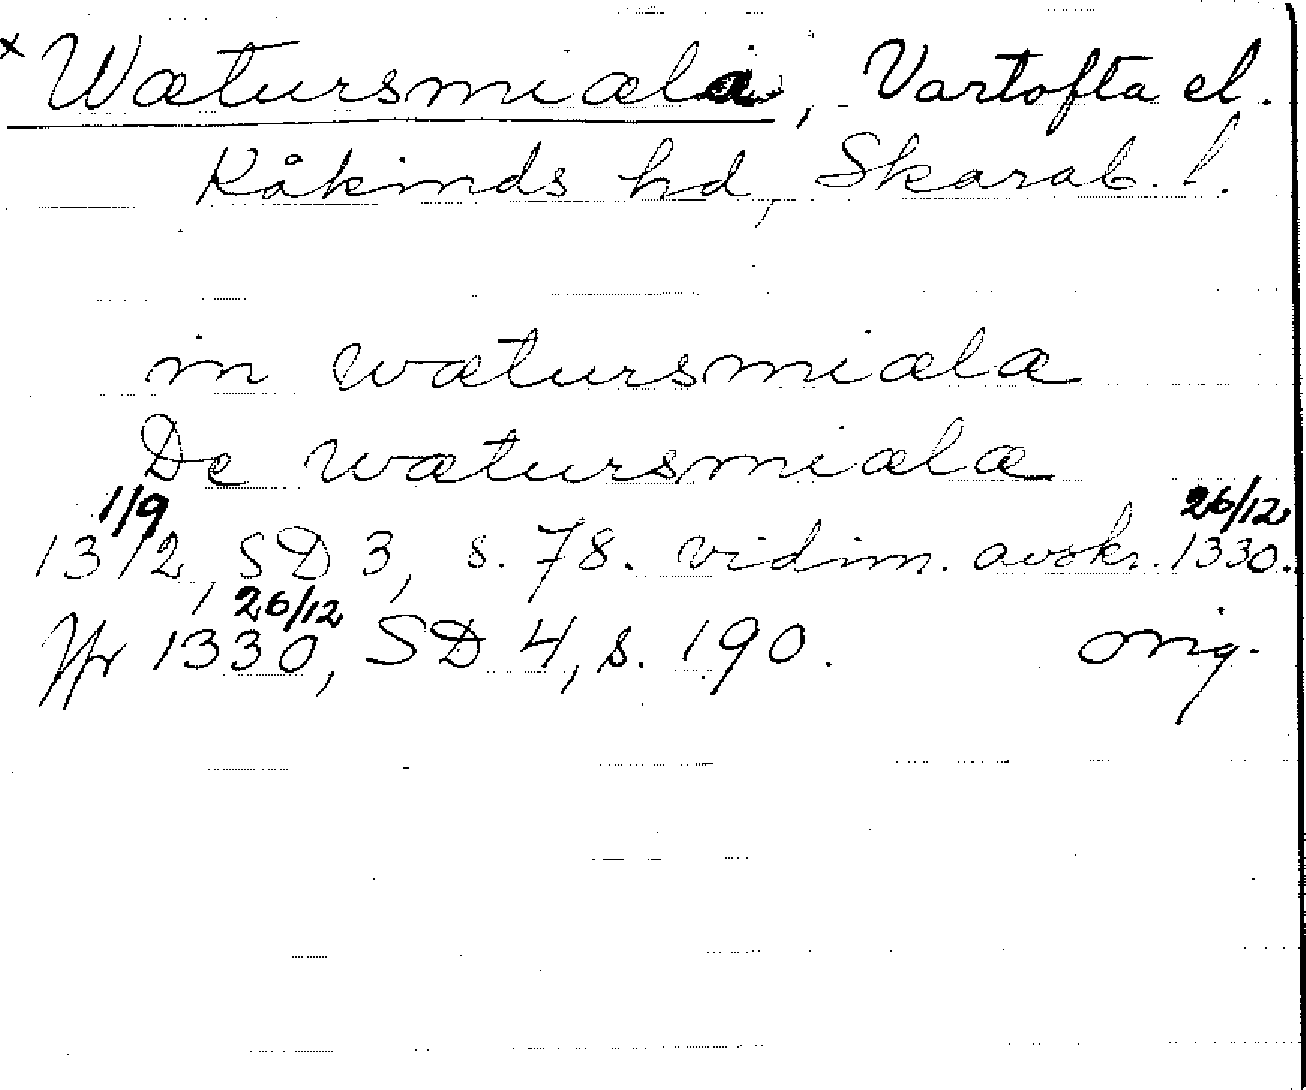 x Wætursmiæla, Vartofta el.
Kåkinds hd, Skarab. l.
in wætursmiælæ
De wætursmiælæ
1/9 26/12
1312, SD 3, s. 78. vidim. avskr. 1330.
26/12
Jfr 1330, SD 4, s. 190. orig.